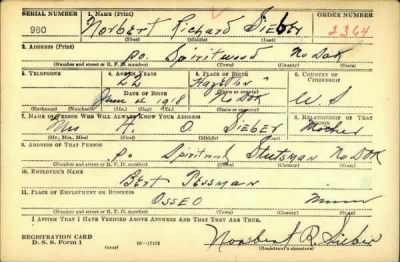 SERIAL NUMBER 1. NAME (Print) ORDER NUMBER
980 Norbert Richard Sieber 2364
(First) (Middle) (Last)
2. ADDRESS (Print)
Spiritwood No Dak
(Number and street or R. F. D. number) (Town) (County) (State)
3. TELEPHONE 4. AGE IN YEARS 5. PLACE OF BIRTH 6. COUNTRY OF CITIZENSHIP
Hazelton
DATE OF BIRTH (Town or county)
June No Dak U S
(Exchange) (Number) (Mo.) (Day) (Yr.) (State or country)
7. NAME OF PERSON WHO WILL ALWAYS KNOW YOUR ADDRESS 8. RELATIONSHIP OF THAT PERSON
Mrs A. O Sieber Mother
(Mr., Mrs., Miss) (First) (Middle) (Last)
9. ADDRESS OF THAT PERSON
Spiritwood Stutsman No Dak
(Number and street or R. F. D. number) (Town) (County) (State)
10. EMPLOYER'S NAME
Bert
11. PLACE OF EMPLOYMENT OR BUSINESS
Osseo Minn
(Number and street or R. F. D. number) (Town) (County) (State)
I AFFIRM THAT I HAVE VERIFIED ABOVE ANSWERS AND THAT THEY ARE TRUE.
REGISTRATION CARD
D. S. S. Form 1 Norbert R. Sieber
(Registrant's signature)